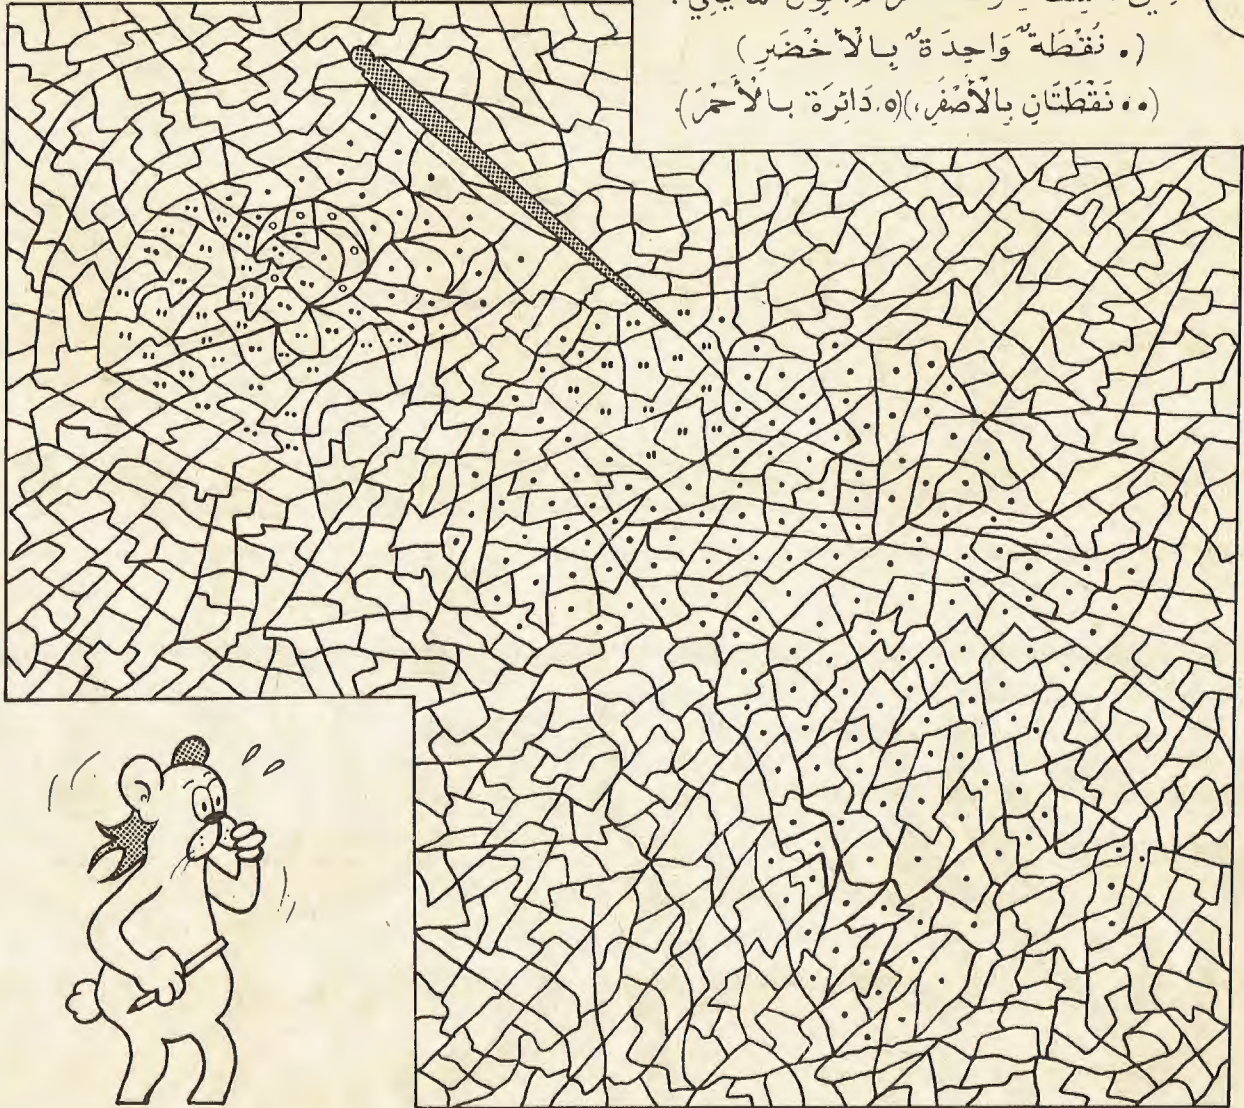 ما يلي:
(. نُقْطَةٌ وَاحِدَةٌ بِالْأَخْضَرِ)
(.. نُقْطَتَانِ بِالْأَصْفَرِ،)(o. دَائِرَة بِالْأَحْمَرَ)